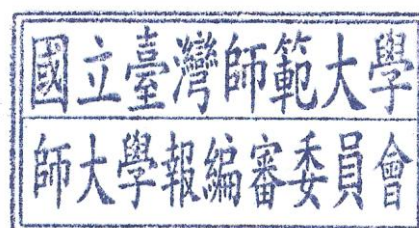 國立臺灣師範大學
師大學報編審委員會